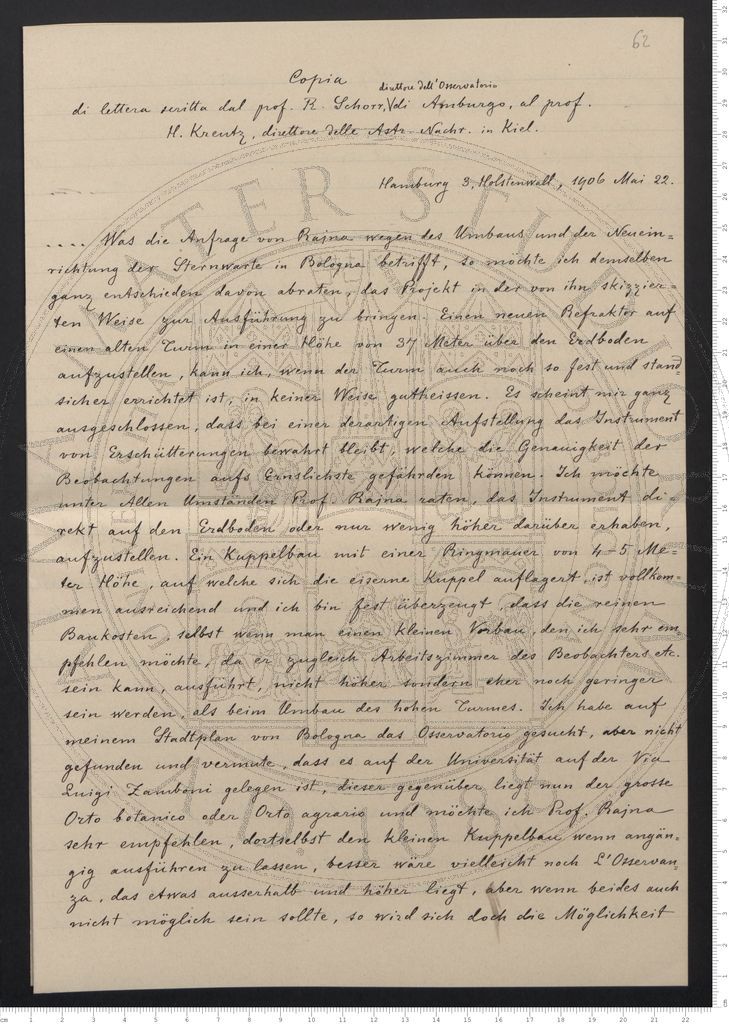 62
Copia
direttore dell'Osservatorio
di lettera scritta dal prof. R. Schorr, di Amburgo, al prof.
H. Kreutz, direttore delle Astr. Nachr. in Kiel.
Hamburg 3, Holstenwall, 1906 Mai 22.
.... Was die Anfrage von Rajna wegen des Umbaus und der Neuein=
richtung der Sternwarte in Bologna betrifft, so möchte ich demselben
ganz entschieden davon abraten, das Projekt in der von ihn skizzier=
ten Weise zur Ausführung zu bringen. Einen neuen Refraktor auf
einen alten Turm in einer Höhe von 37 Meter über den Erdboden
aufzustellen, kann ich, wenn der Turm auch noch so fest und stand=
sicher errichtet ist, in keiner Weise gutheissen. Es scheint mir ganz
ausgeschlossen, dass bei einer derartigen Aufstellung das Instrument
von Erschütterungen bewahrt bleibt, welche die Genauigkeit der
Beobachtungen aufs Ernslichste gefährden können. Ich möchte
unter Allen Umständen Prof. Rajna raten, das Instrument di=
rekt auf den Erdboden oder nur wenig höher darüber erhaben,
aufzustellen. Ein Kuppelbau mit einer Ringmauer von 4-5 Me=
ter Höhe, auf welche sich die eiserne Kuppel auflagert, ist vollkom=
men ausreichend und ich bin fest überzeugt, dass die reinen
Baukosten, selbst wenn man einen kleinen Vorbau, den ich sehr em=
pfehlen möchte, da er zugleich Arbeitszimmer des Beobachters etc.
sein kann, ausführt, nicht höher sondern eher noch geringer
sein werden, als beim Umbau des hohen Turmes. Ich habe auf
meinem Stadtplan von Bologna das Osservatorio gesucht, aber nicht
gefunden und vermute, dass es auf der Universität auf der Via
Luigi Zamboni gelegen ist, dieser gegenüber liegt nun der grosse
Orto botanico oder Orto agrario und möchte ich Prof. Rajna
sehr empfehlen, dortselbst den kleinen Kuppelbau wenn angän=
gig ausführen zu lassen, besser wäre vielleicht noch L'Osservan=
za, das etwas ausserhalb und höher liegt, aber wenn beides auch
nicht möglich sein sollte, so wird sich doch die Möglichkeit